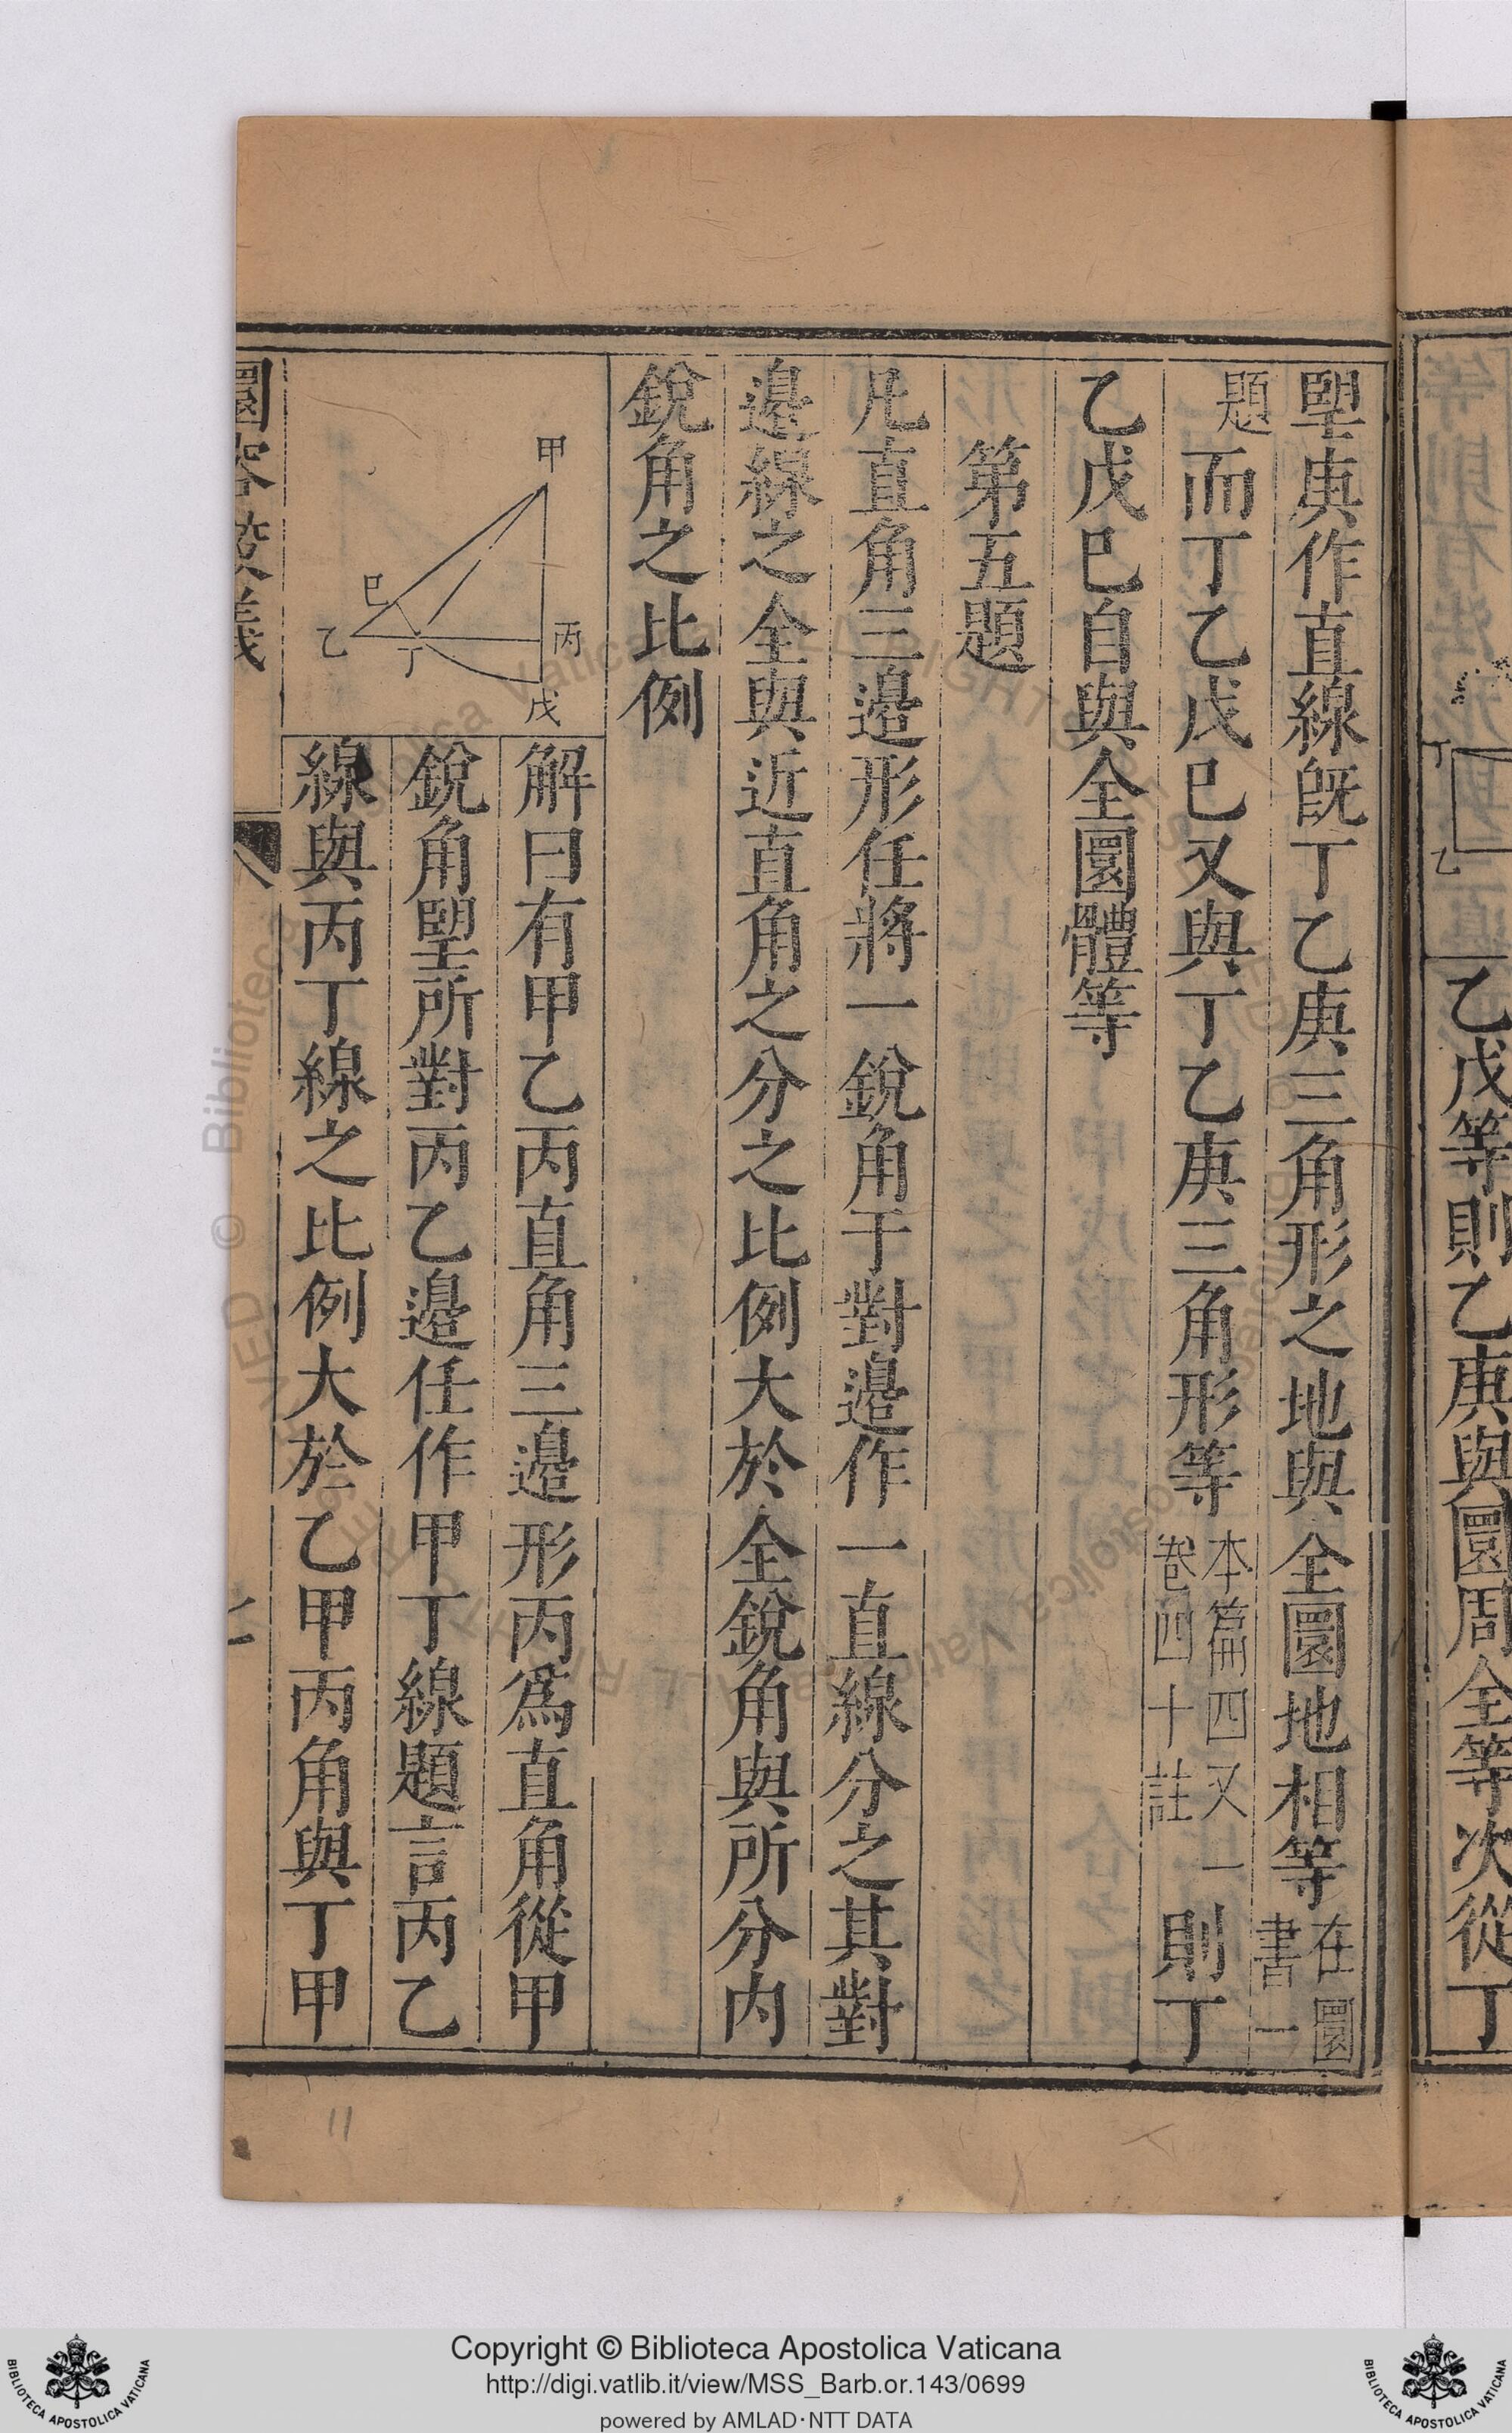 乙戊等則乙庚與圜周全等次從丁
丁
乙
朢庚作直線旣丁乙庚三角形之地與全圜地相等在圜書一
題而丁乙戊巳又與丁乙庚三角形等本篇四又一卷四十註則丁
乙戊巳自與全圜體等
第五題
凡直角三邊形任將一銳角于對邊作一直線分之其對
邊線之全與近直角之分之比例大於全銳角與所分內
銳角之比例
甲
巳
乙
丁
丙
戊
解曰有甲乙丙直角三邊形丙爲直角從甲
銳角朢所對丙乙邊任作甲丁線題言丙乙
線與丙丁線之比例大於乙甲丙角與丁甲
圜容較義
七
11
Copyright © Biblioteca Apostolica Vaticana
http://digi.vatlib.it/view/MSS_Barb.or.143/0699
powered by AMLAD·NTT DATA
BIBLIOTECA APOSTOLICA VATICANA
BIBLIOTECA APOSTOLICA VATICANA